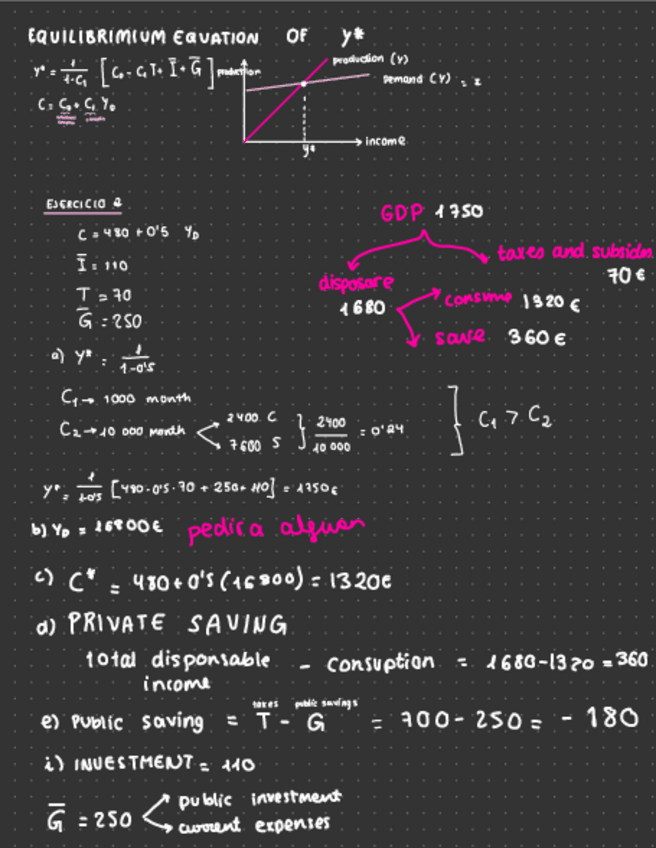 EQUILIBRIMIUM EQUATION OF y*
y* = 1/1-C₁ [C₀ - C₁T + Ī + Ḡ]
C = C₀ + C₁ Y_D
production
production (Y)
Demand (Y) = z
income
y*
EJERCICIO 2
C = 480 + 0'5 Y_D
Ī = 110
T = 70
Ḡ = 250
a) y* = 1/1-0'5
C₁ → 1000 month
C₂ → 10 000 month
2400 C
7600 S
2400/10 000 = 0'24
C₁ > C₂
GDP 1750
disposare 1680
taxes and subsidi
70 €
consume 1320 €
save 360 €
y* = 1/1-0'5 [480 - 0'5 · 70 + 250 + 110] = 1750€
b) Y_D = 16800€ pedir a alguen
c) C* = 480 + 0'5 (16800) = 1320€
d) PRIVATE SAVING
total disponsable income - consuption = 1680 - 1320 = 360
taxes public savings
e) Public saving = T - G = 700 - 250 = - 180
i) INVESTMENT = 110
Ḡ = 250
public investment
current expenses